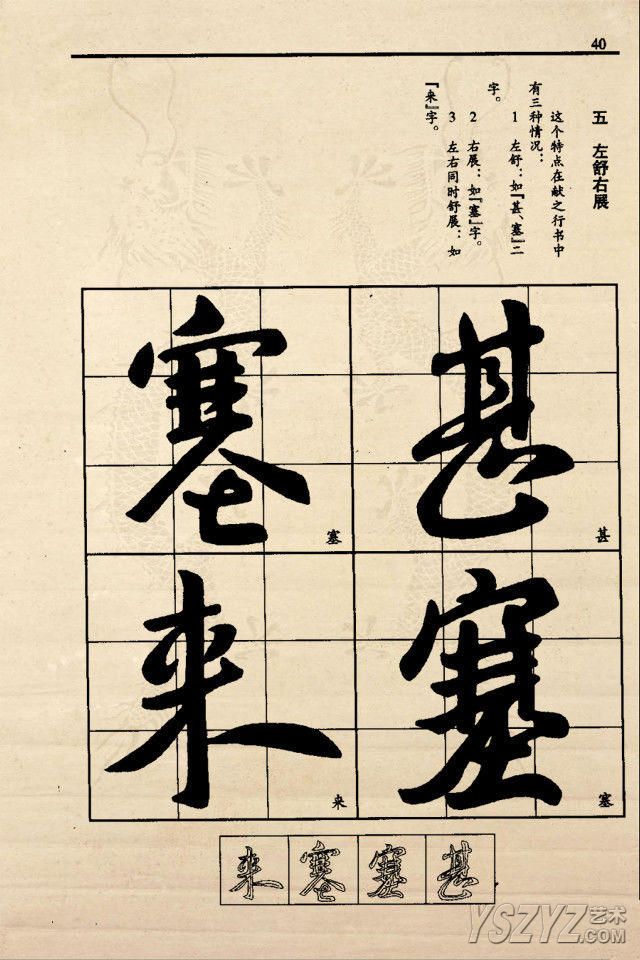 40
五 左舒右展
这个特点在献之行书中
有三种情况：
1 左舒：如『甚、塞』二
字。
2 右展：如『塞』字。
3 左右同时舒展：如
『来』字。
甚
甚
塞
塞
塞
塞
来
来
甚
塞
塞
来
YSZYZ艺术
.COM